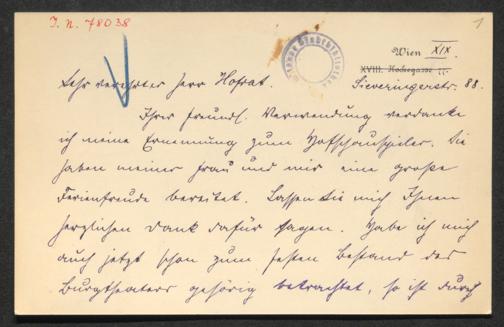 I. N. 78038
1
Wiener Stadtbibliothek
Wien XIX.
XVIII. Hockegasse
Sehr verehrter Herr Hofrat.
Sieveringerstr. 88.
Ihrer freundl. Verwendung verdanke
ich meine Ernennung zum Hofschauspieler. Sie
haben meiner Frau und mir eine große
Ferienfreude bereitet. Lassen Sie mich Ihnen
herzlichen Dank dafür sagen. Habe ich mich
auch jetzt schon zum festen Bestand des
Burgtheaters gehörig betrachtet, so ist durch